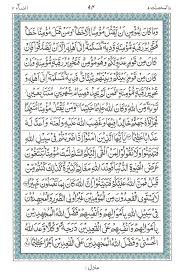 وَمَا كَانَ لِمُؤْمِنٍ اَنْ يَّقْتُلَ مُؤْمِنًا اِلَّا خَطَـًٔا وَمَنْ قَتَلَ مُؤْمِنًا خَطَـًٔا
فَتَحْرِيْرُ رَقَبَةٍ مُّؤْمِنَةٍ وَّدِيَةٌ مُّسَلَّمَةٌ اِلٰٓى اَهْلِهٖٓ اِلَّآ اَنْ
يَّصَّدَّقُوْا فَاِنْ كَانَ مِنْ قَوْمٍ عَدُوٍّ لَّكُمْ وَهُوَ مُؤْمِنٌ فَتَحْرِيْرُ رَقَبَةٍ
مُّؤْمِنَةٍ وَاِنْ كَانَ مِنْ قَوْمٍۢ بَيْنَكُمْ وَبَيْنَهُمْ مِّيْثَاقٌ فَدِيَةٌ مُّسَلَّمَةٌ
اِلٰٓى اَهْلِهٖ وَتَحْرِيْرُ رَقَبَةٍ مُّؤْمِنَةٍ فَمَنْ لَّمْ يَجِدْ فَصِيَامُ شَهْرَيْنِ
مُتَتَابِعَيْنِ تَوْبَةً مِّنَ اللّٰهِ وَكَانَ اللّٰهُ عَلِيْمًا حَكِيْمًا وَمَنْ يَّقْتُلْ
مُؤْمِنًا مُّتَعَمِّدًا فَجَزَآؤُهٗ جَهَنَّمُ خٰلِدًا فِيْهَا وَغَضِبَ اللّٰهُ عَلَيْهِ
وَلَعَنَهٗ وَاَعَدَّ لَهٗ عَذَابًا عَظِيْمًا يٰٓاَيُّهَا الَّذِيْنَ اٰمَنُوْٓا اِذَا ضَرَبْتُمْ فِيْ سَبِيْلِ اللّٰهِ
فَتَبَيَّنُوْا وَلَا تَقُوْلُوْا لِمَنْ اَلْقٰٓى اِلَيْكُمُ السَّلٰمَ لَسْتَ مُؤْمِنًا تَبْتَغُوْنَ
عَرَضَ الْحَيٰوةِ الدُّنْيَا فَعِنْدَ اللّٰهِ مَغَانِمُ كَثِيْرَةٌ كَذٰلِكَ كُنْتُمْ
مِّنْ قَبْلُ فَمَنَّ اللّٰهُ عَلَيْكُمْ فَتَبَيَّنُوْا اِنَّ اللّٰهَ كَانَ بِمَا تَعْمَلُوْنَ خَبِيْرًا
لَا يَسْتَوِى الْقٰعِدُوْنَ مِنَ الْمُؤْمِنِيْنَ غَيْرُ اُولِى الضَّرَرِ وَالْمُجٰهِدُوْنَ فِيْ سَبِيْلِ اللّٰهِ
بِاَمْوَالِهِمْ وَاَنْفُسِهِمْ فَضَّلَ اللّٰهُ الْمُجٰهِدِيْنَ
بِاَمْوَالِهِمْ وَاَنْفُسِهِمْ عَلَى الْقٰعِدِيْنَ دَرَجَةً وَكُلًّا وَّعَدَ اللّٰهُ
الْحُسْنٰى وَفَضَّلَ اللّٰهُ الْمُجٰهِدِيْنَ عَلَى الْقٰعِدِيْنَ اَجْرًا عَظِيْمًا